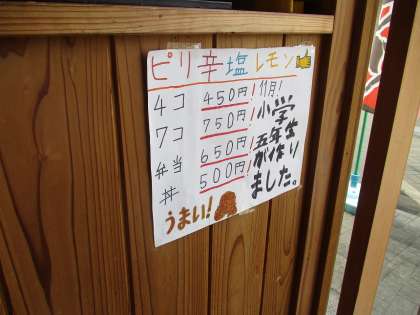 ピリ辛塩レモン
4コ 450円!
7コ 750円!
弁当 650円!
丼 500円!
うまい!
11月!
小学
五年生
が作り
ました。